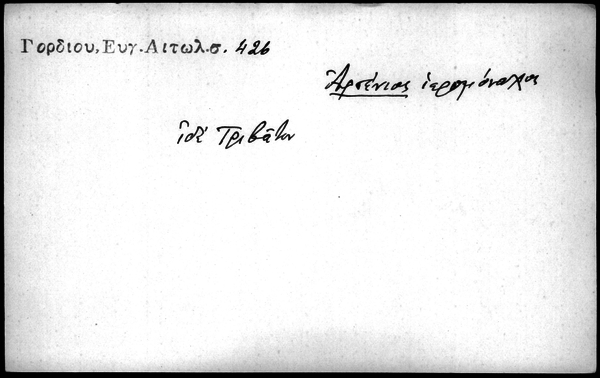 Γορδιου, Ευγ. Αιτωλ.σ. 426
Ἀρσένιος ἱερομόναχος
ἰδέ Τριβᾶτον